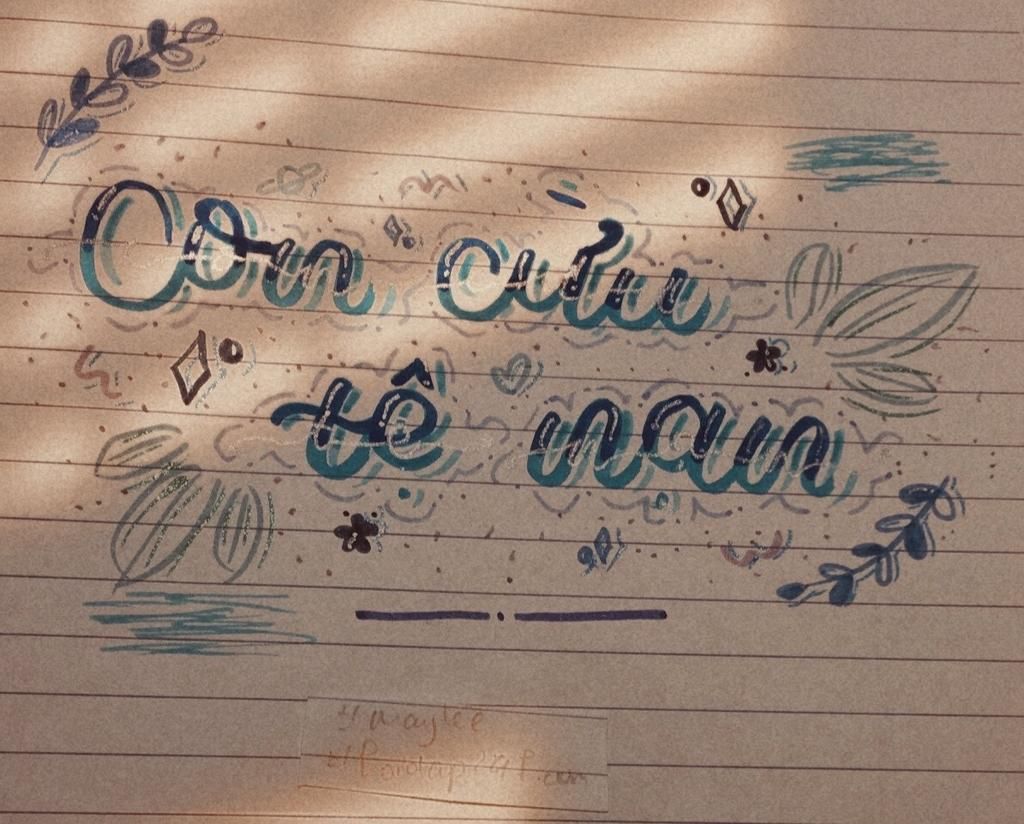 Con cừu
tệ nạn
# maylee